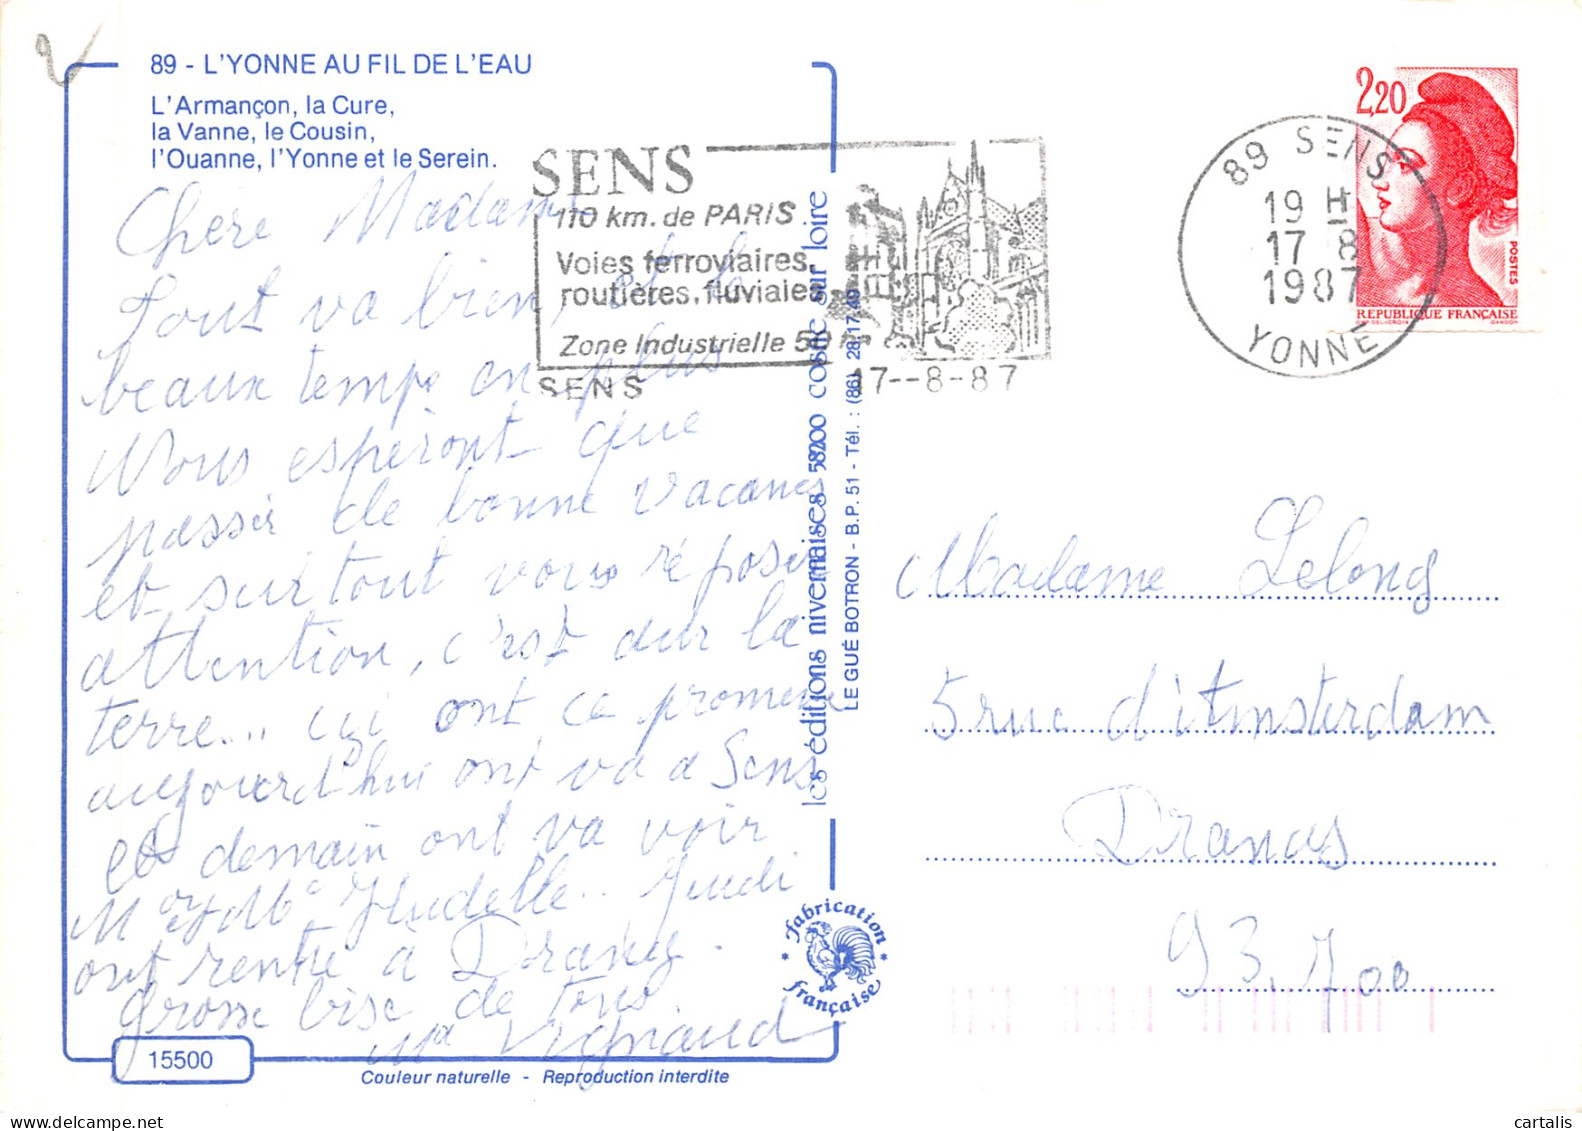 89 - L'YONNE AU FIL DE L'EAU
L'Armançon, la Cure,
la Vanne, le Cousin,
l'Ouanne, l'Yonne et le Serein.
Chère Madame
Tout va bien, et le
beaux temps en plus
Nous espèront que
passér de bonne vacances
et surtout vous réposer
attention, c'est dur la
terre... ici ont ce promene
aujourd'hui ont va a Sens
et demain ont va voir
Mr et Me Hudelle.. Jeudi
ont rentre à Drancy.
grosse bise de tous
Vignaud
15500
Couleur naturelle - Reproduction interdite
SENS
110 km. de PARIS
Voies ferroviaires,
routières, fluviales
Zone Industrielle 50 ha
SENS
17--8-87
les éditions nivernaises 58200 cosne sur loire
LE GUÉ BOTRON - B.P. 51 - Tél. : (86) 28.17.49
fabrication
française
89 SENS
19 H
17 8
1987
YONNE
2,20
POSTES
REPUBLIQUE FRANÇAISE
GANDON
Madame Lelong
5 rue d'Amsterdam
Drancy
93.700
cartalis